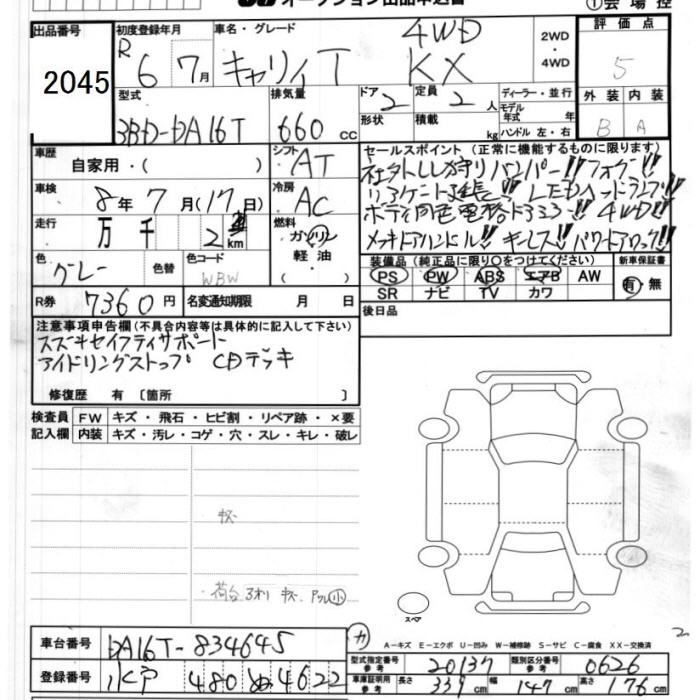 オークション出品申込書 ①会場控
出品番号 2045
初度登録年月 R 6年 7月
車名・グレード キャリィT 4WD KX
2WD・4WD
評価点 5
外装 B 内装 A
型式 3BD-DA16T
排気量 660cc
ドア 2 形状
定員 2人 積載 kg
ディーラー・並行
モデル年式 年
ハンドル 左・右
車歴 自家用・( )
シフト AT
車検 8年 7月(17日)
冷房 AC
走行 万 千 2 km
燃料 ガソリン 軽油・( )
色 グレー 色替
色コード WBW
R券 7360円
名変通知期限 月 日
セールスポイント(正常に機能するものに限ります)
社外LL狩りバンパー!! フォグ!!
リアゲート延長!! LEDヘッドランプ!!
ボディ同色電格ドアミラー!! 4WD!!
メッキドアハンドル!! キーレス!! パワードアロック!!
装備品(純正品に限り〇をつけてください)
PS PW ABS エアB AW
SR ナビ TV カワ
新車保証書 有・無
後日品
注意事項申告欄(不具合内容等は具体的に記入して下さい)
スズキセイフティサポート
アイドリングストップ CDデッキ
修復歴 有 〔箇所 〕
検査員記入欄
FW キズ・飛石・ヒビ割・リペア跡・×要
内装 キズ・汚レ・コゲ・穴・スレ・キレ・破レ
キズ
荷台 スレ キズ アル小
スペア
A-キズ E-エクボ U-凹み W-補修跡 S-サビ C-腐食 XX-交換済
車台番号 DA16T-834645
カ
型式指定番号 参考 20137
類別区分番号 参考 0626
登録番号 水戸 480 ぬ 4622
車庫証明用 参考 長さ 339cm 幅 147cm 高さ 176cm